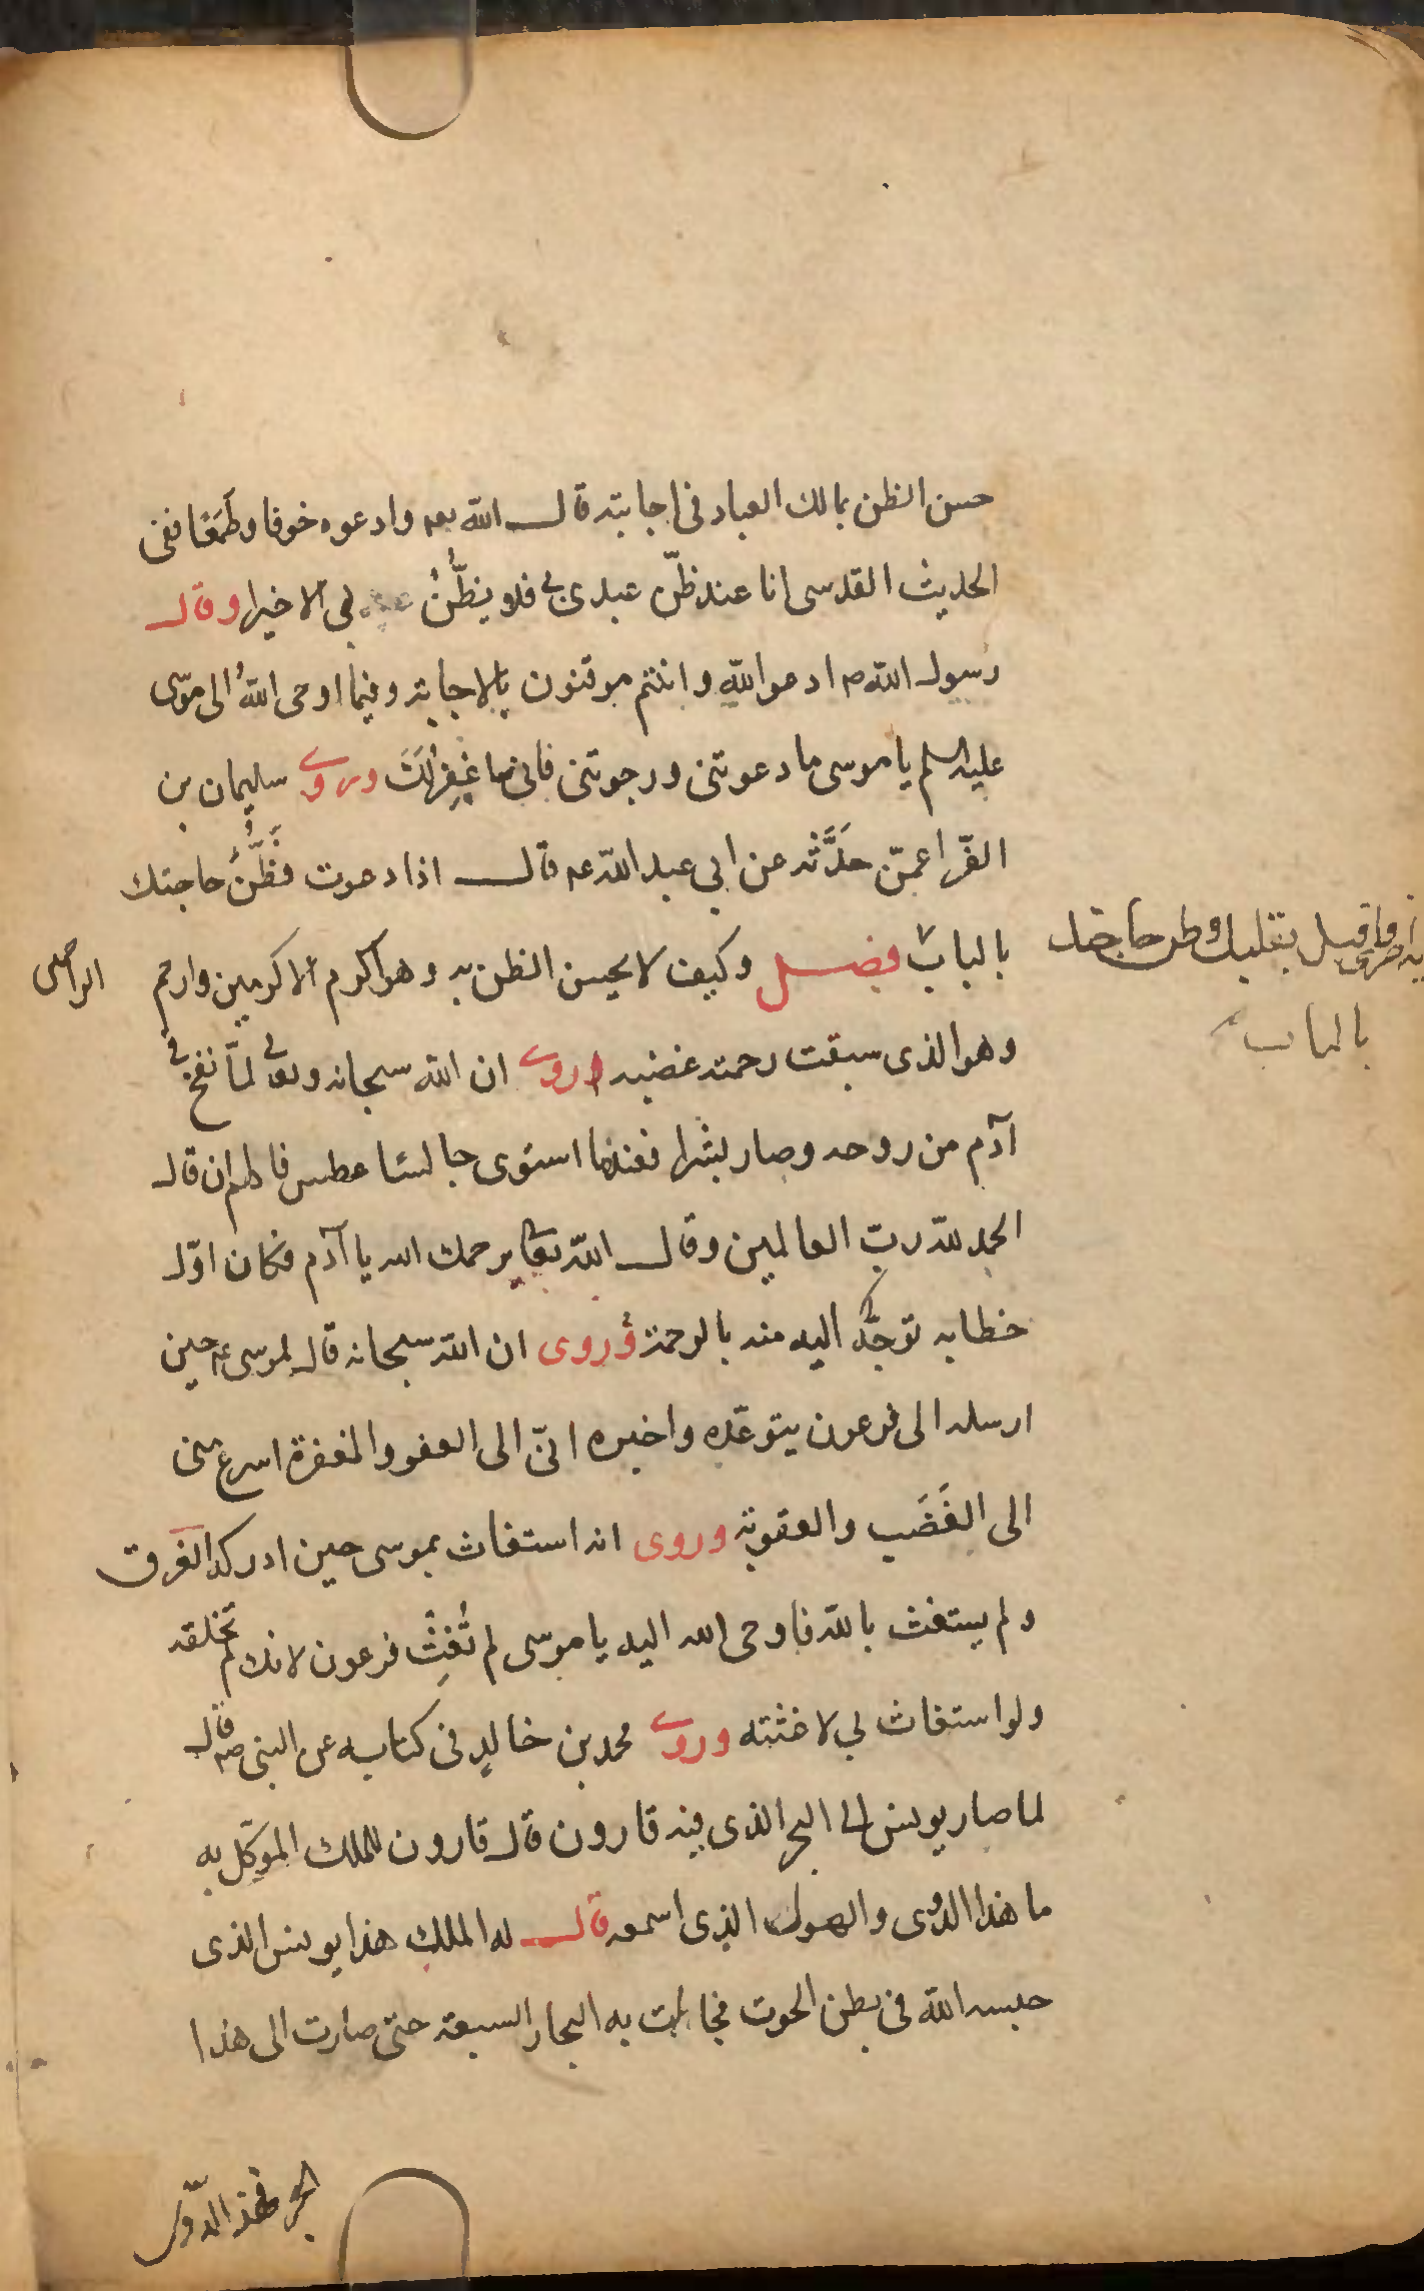 حسن الظن بمالك العباد فى اجابته قال الله تعه وادعوه خوفا وطمَعًا ففى
الحديث القدسى انا عند ظنّ عبدى بى فلا يظُنُّ بى الا خيرا وقال
رسول الله ص ادعوا الله وانتم موقنون بالاجابة وفيما اوحى اللهُ الى موسى
عليه السلم يا موسى ما دعوتنى ورجوتنى فانى ساغفِرُ لَكَ وروى سليمان بن
الفّرا عمّن حَدَّثه عن ابى عبد الله عه قال اذا دعوت فظُنَّ حاجتك
بالباب فصل وكيف لا يحسن الظن به وهو اكرم الاكرمين وارحم
الراحمين
وهو الذى سبقت رحمته غضبه وروى ان الله سبحانه وتعالى لمّا نفخ فى
آدم من روحه وصار بشرا فعندما استوى جالسًا عطس فالهم ان قال
الحمد لله ربّ العالمين وقال الله تعا يرحمك الله يا آدم فكان اوّل
خطابه توجَّه اليه منه بالرحمة وروى ان الله سبحانه قال لموسى عه حين
ارسله الى فرعون يتوعّده واخبره انّى الى العفو والمغفرة اسرع منى
الى الغَضَب والعقوبة وروى انه استغاث بموسى حين ادركه الغرق
ولم يستغث بالله فاوحى الله اليه يا موسى لم تُغِثْ فرعون لانك لم تخلقه
ولو استغاث بى لاغثته وروى محمد بن خالدٍ فى كتابه عن النبى صه قال
لما صار يونس الى البحر الذى فيه قارون قال قارون للملك الموكّل به
ما هذا الدوى والهول الذى اسمعه قال له الملك هذا يونس الذى
حبسه الله فى بطن الحوت فجالت به البحار السبعة حتى صارت الى هذا
البحر فهذا الدّوى
فاقبل بقلبك وظن حاجتك
بالباب